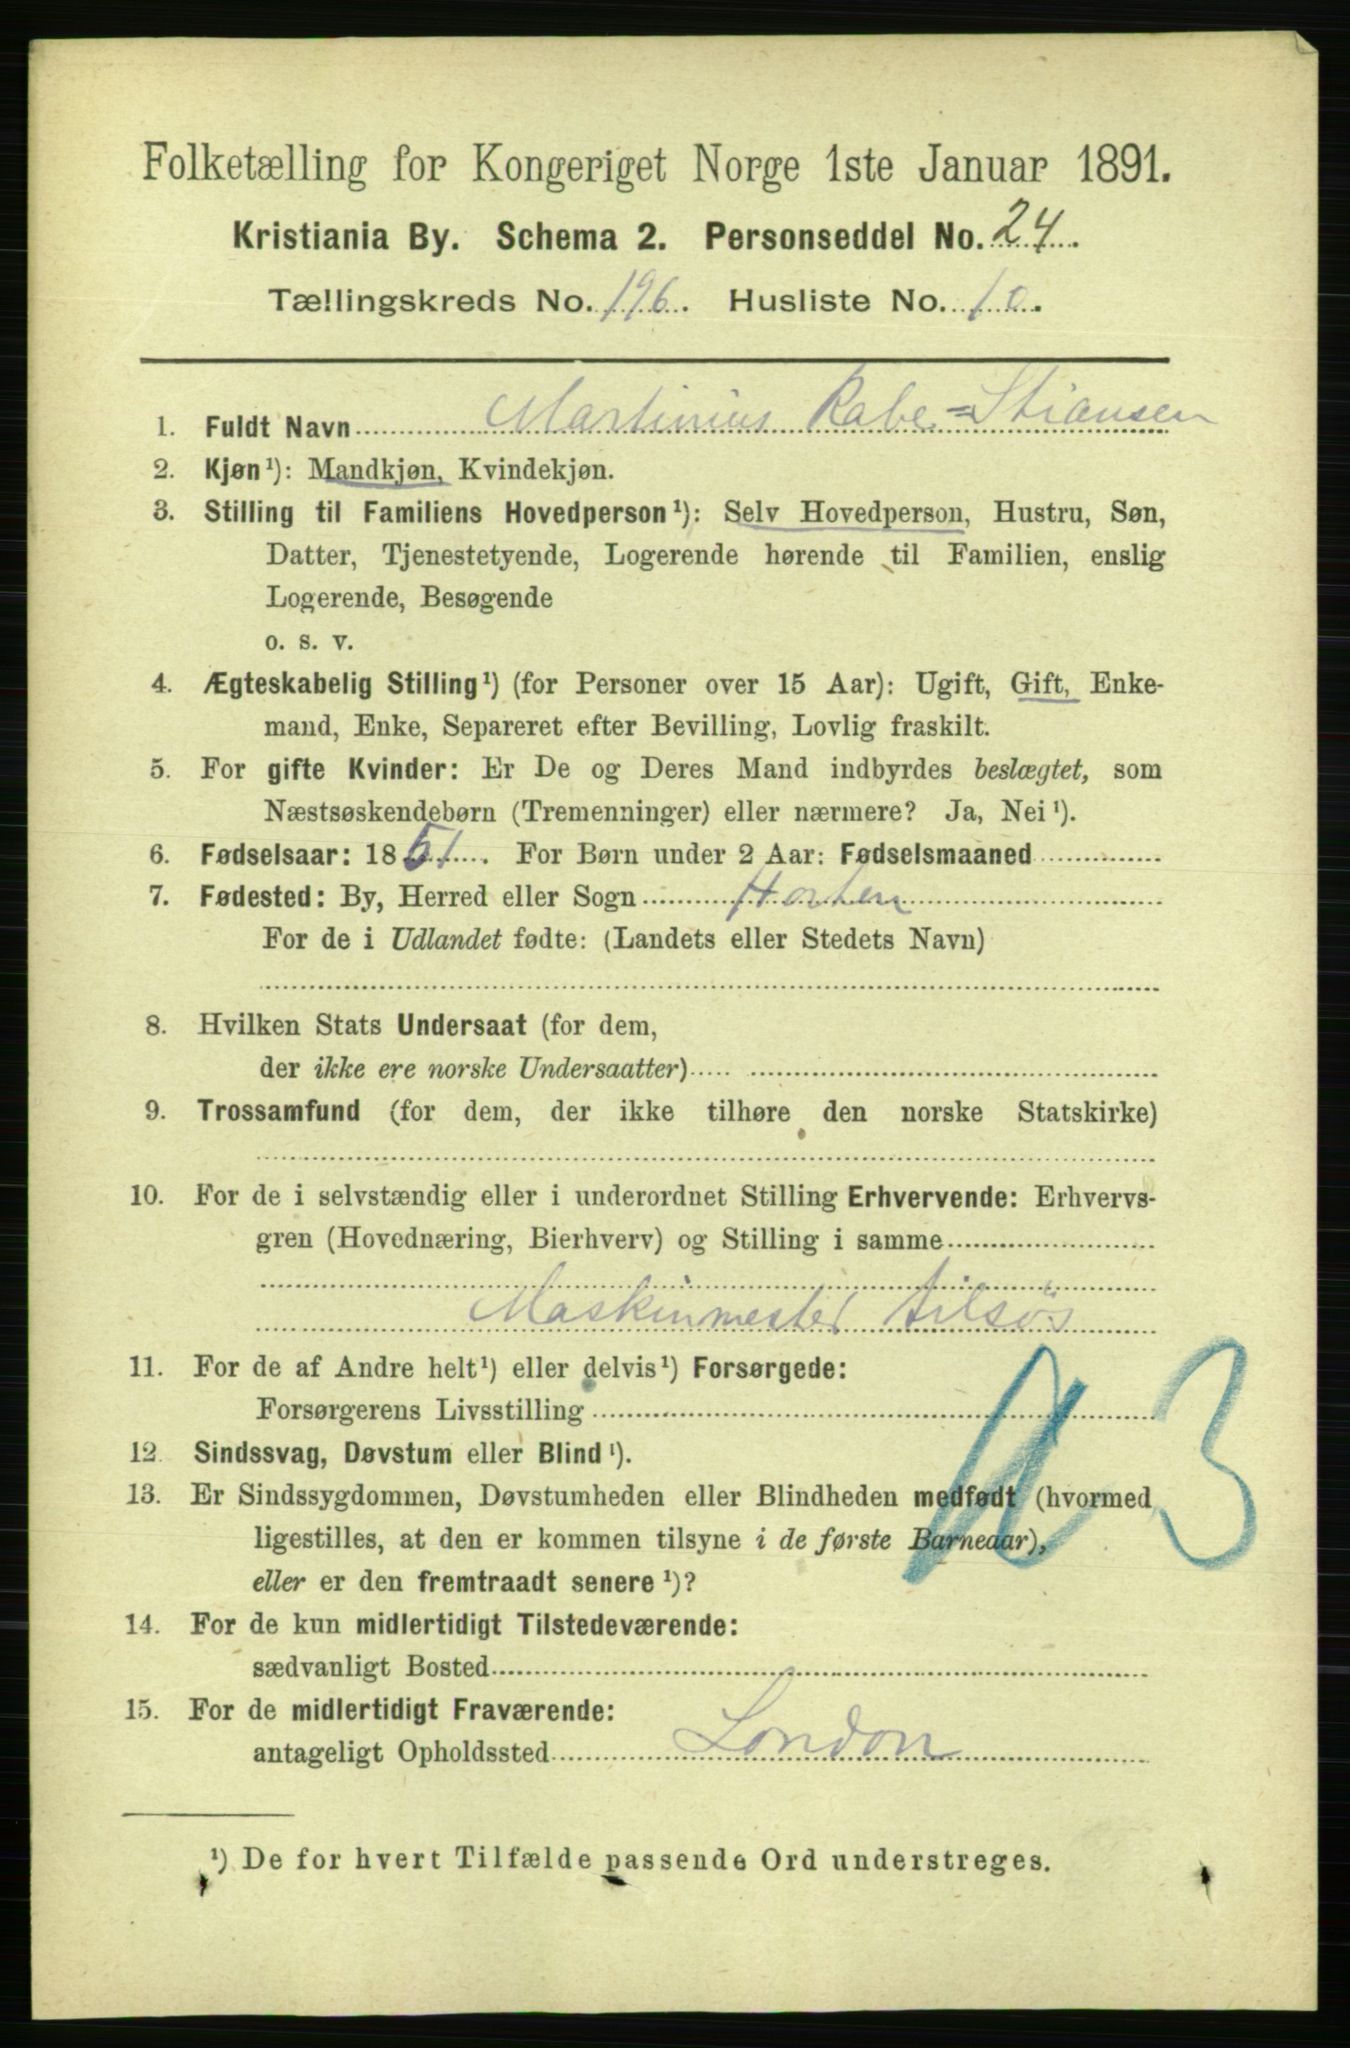 Folketælling for Kongeriget Norge 1ste Januar 1891.
Kristiania By. Schema 2. Personseddel No. 24.
Tællingskreds No. 196. Husliste No. 10.
1. Fuldt Navn Martinius Rabe=Stiansen
2. Kjøn¹): Mandkjøn, Kvindekjøn.
3. Stilling til Familiens Hovedperson¹): Selv Hovedperson, Hustru, Søn,
Datter, Tjenestetyende, Logerende hørende til Familien, enslig
Logerende, Besøgende
o. s. v.
4. Ægteskabelig Stilling¹) (for Personer over 15 Aar): Ugift, Gift, Enke-
mand, Enke, Separeret efter Bevilling, Lovlig fraskilt.
5. For gifte Kvinder: Er De og Deres Mand indbyrdes beslægtet, som
Næstsøskendebørn (Tremenninger) eller nærmere? Ja, Nei¹).
6. Fødselsaar: 1851. For Børn under 2 Aar: Fødselsmaaned
7. Fødested: By, Herred eller Sogn Horten
For de i Udlandet fødte: (Landets eller Stedets Navn)
8. Hvilken Stats Undersaat (for dem,
der ikke ere norske Undersaatter)
9. Trossamfund (for dem, der ikke tilhøre den norske Statskirke)
10. For de i selvstændig eller i underordnet Stilling Erhvervende: Erhvervs-
gren (Hovednæring, Bierhverv) og Stilling i samme
Maskinmester tilsøs
11. For de af Andre helt¹) eller delvis¹) Forsørgede:
Forsørgerens Livsstilling
12. Sindssvag, Døvstum eller Blind¹).
13. Er Sindssygdommen, Døvstumheden eller Blindheden medfødt (hvormed
ligestilles, at den er kommen tilsyne i de første Barneaar),
eller er den fremtraadt senere¹)?
3
14. For de kun midlertidigt Tilstedeværende:
sædvanligt Bosted
15. For de midlertidigt Fraværende:
antageligt Opholdssted London
¹) De for hvert Tilfælde passende Ord understreges.